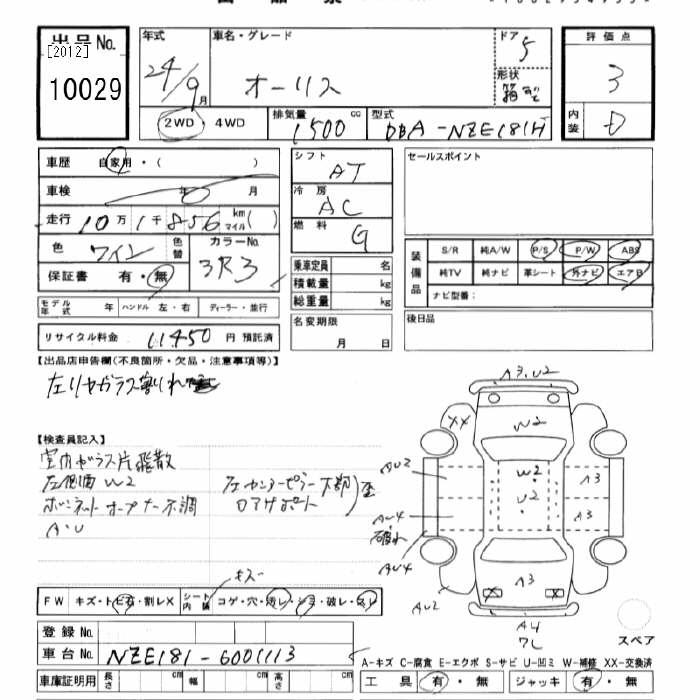 出品No. [2012] 10029
年式 24/9月
車名・グレード オーリス
ドア 5
形状
評価点 3
内装 D
2WD ・ 4WD
排気量 1500 cc
型式 DBA-NZE181H
車歴 自家用・( )
車検 年 月
走行 10万 1千 856 km マイル( )
色 ワイン 色替
カラーNo. 3R3
保証書 有・無
モデル年式 年 ハンドル 左・右 ディーラー・並行
リサイクル料金 11450 円 預託済
シフト AT
冷房 AC
燃料 G
乗車定員 名
積載量 kg
総重量 kg
名変期限
月 日
セールスポイント
装備品 S/R 純A/W P/S P/W ABS
純TV 純ナビ 革シート 外ナビ エアB
ナビ型番:
後日品
【出品店申告欄(不良箇所・欠品・注意事項等)】
左リヤガラス割れ
【検査員記入】
室内ガラス片飛散
左側面W2
左センターピラー下部歪
ボンネットオープナー不調
ロアサポート
A・U
A3.U2
XX
W2
AU2
W2
U2
A3
A3
AU4
破れ
AU4
A3
AU2
A4
ワレ
キズ
FW キズ・トビ石・割レX
シート内張 コゲ・穴・汚レ・シミ・破レ・スレ
スペア
登録No.
車台No. NZE181-6001113
車庫証明用 長さ cm 幅 cm 高さ cm
A-キズ C-腐食 E-エクボ S-サビ U-凹ミ W-補修 XX-交換済
工具 有・無 ジャッキ 有・無